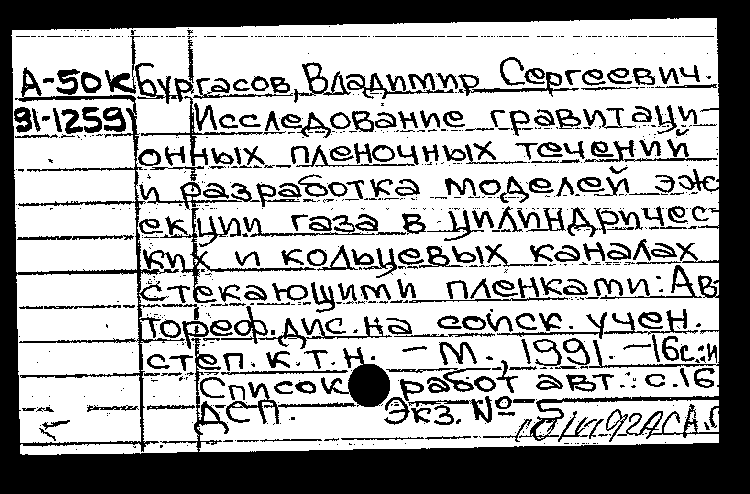 А-50к Бургасов, Владимир Сергеевич.
91-1259 Исследование гравитаци-
онных пленочных течений
и разработка моделей эж-
екции газа в цилиндричес-
ких и кольцевых каналах
стекающими пленками: Ав
тореф. дис. на соиск. учен.
степ. к.т.н. – М., 1991. – 16с.: и
Список работ авт.: с. 16
ДСП. Экз. № 5